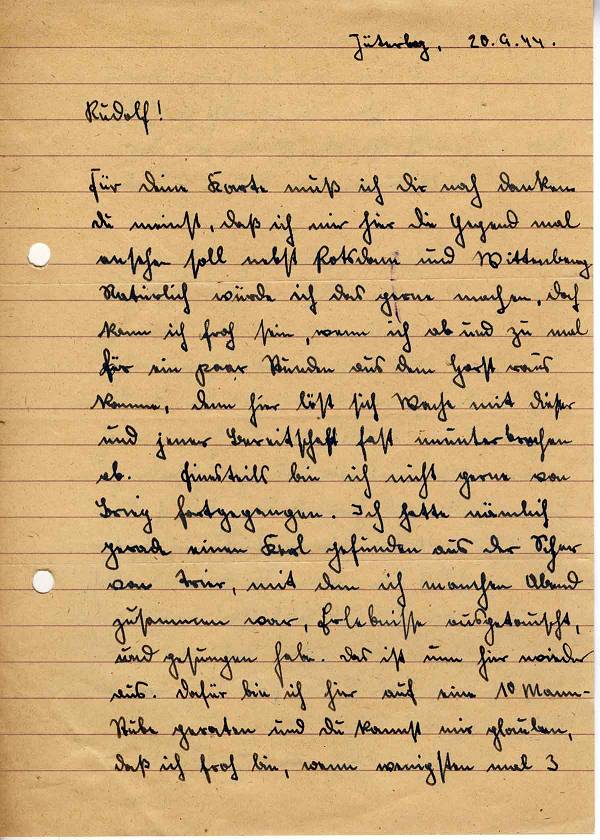 Jüterbog, 20.9.44.
Rudolf!
Für deine Karte muß ich dir noch danken
du meinst, daß ich mir hier die Gegend mal
ansehen soll nebst Potsdam und Wittenberg
Natürlich würde ich das gerne machen, doch
kann ich froh sein, wenn ich ab und zu mal
für ein paar Stunden aus dem Horst raus
komme, denn hier löst sich Wache mit dieser
und jener Bereitschaft fast ununterbrochen
ab. Einesteils bin ich nicht gerne von
Brieg fortgegangen. Ich hatte nämlich
gerade einen Kerl gefunden aus der Schar
von Trier, mit dem ich manchen Abend
zusammen war, Erlebnisse ausgetauscht,
und gesungen habe. Das ist nun hier wieder
aus. Dafür bin ich hier auf eine 10 Mann-
Stube geraten und du kannst mir glauben,
daß ich froh bin, wenn wenigsten mal 3